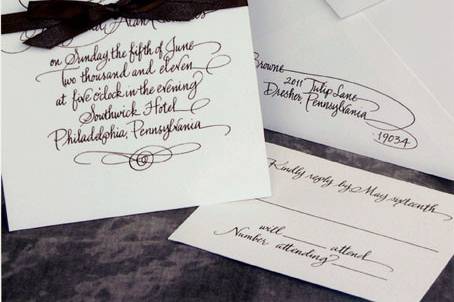 Alan
on Sunday, the fifth of June
two thousand and eleven
at five o'clock in the evening
Southwick Hotel
Philadelphia, Pennsylvania
Browne
2011 Tulip Lane
Dresher, Pennsylvania
19034
Kindly reply by May sixteenth
will attend
Number attending